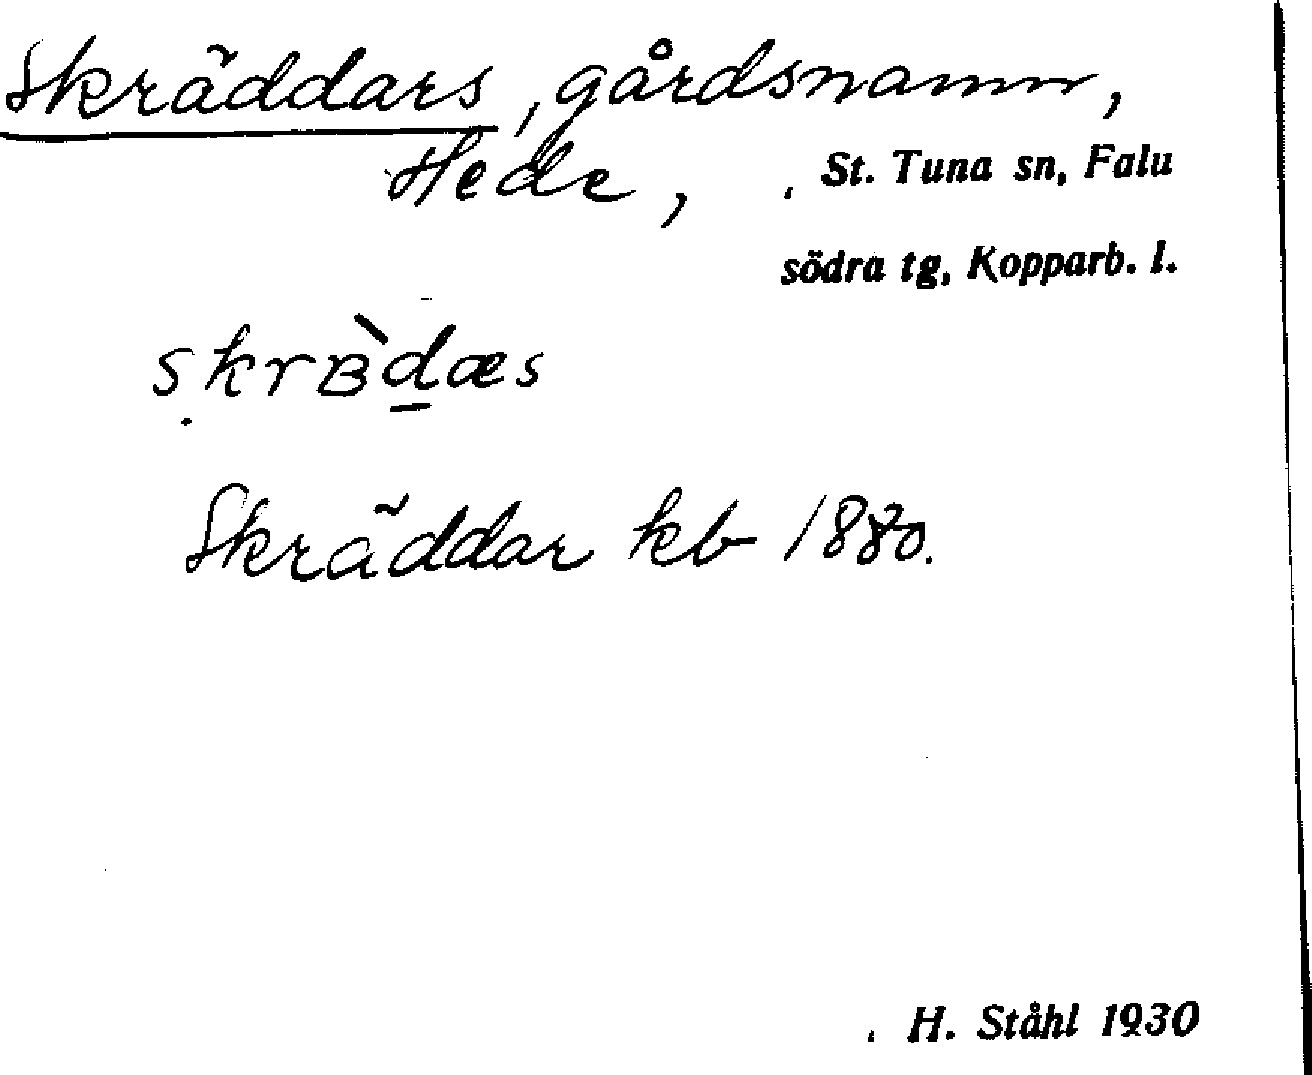 Skräddars, gårdsnamn,
Hede, St. Tuna sn, Falu
södra tg, Kopparb. l.
skrʙ̀d̲æs
Skräddar kb 1880.
H. Ståhl 1930